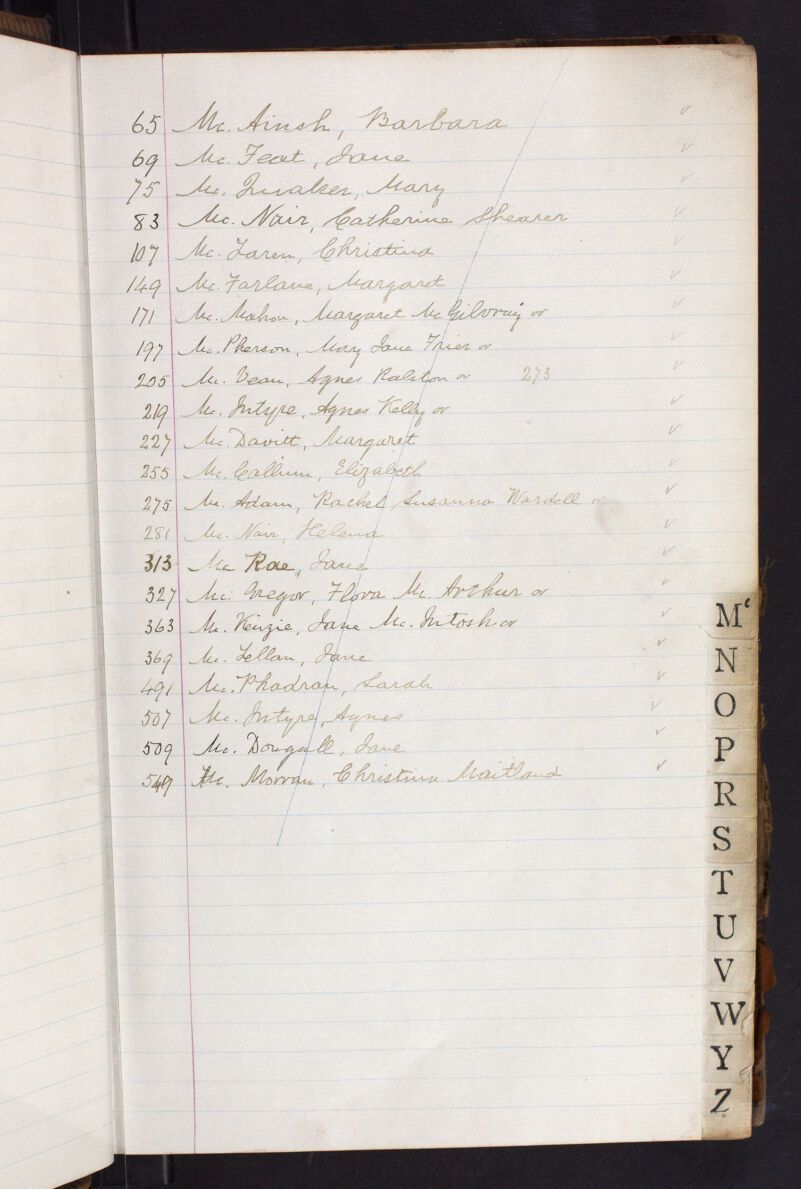 65 Mc. Ainsh, Barbara ✓
69 Mc. Feat, Jane ✓
75 Mc. Mary ✓
83 Mc. Nair, Catherine Shearer ✓
107 Mc. Laren, Christina ✓
149 Mc. Farlane, Margaret ✓
171 Mc. Mahon, Margaret Mc Gilvray or ✓
197 Mc. Pherson, Mary Jane Frier or ✓
205 Mc. Vean, Agnes Ralston or 273 ✓
219 Mc. Intyre, Agnes Kelly or ✓
227 Mc. Davitt, Margaret ✓
255 Mc. Callum, Elizabeth ✓
275 Mc. Adam, Rachel Susanna Wardell or ✓
281 Mc. Nair, Helena ✓
313 Mc Rae, Jane ✓
327 Mc. Gregor, Flora Mc. Arthur or ✓
363 Mc. Kenzie, Jane Mc. Intosh or ✓
369 Mc. Lellan, Jane ✓
491 Mc. Phadran, Sarah ✓
507 Mc. Intyre, Agnes ✓
509 Mc. Dougall, Jane ✓
549 Mc. Morran, Christina Maitland ✓
Mc
N
O
P
R
S
T
U
V
W
Y
Z